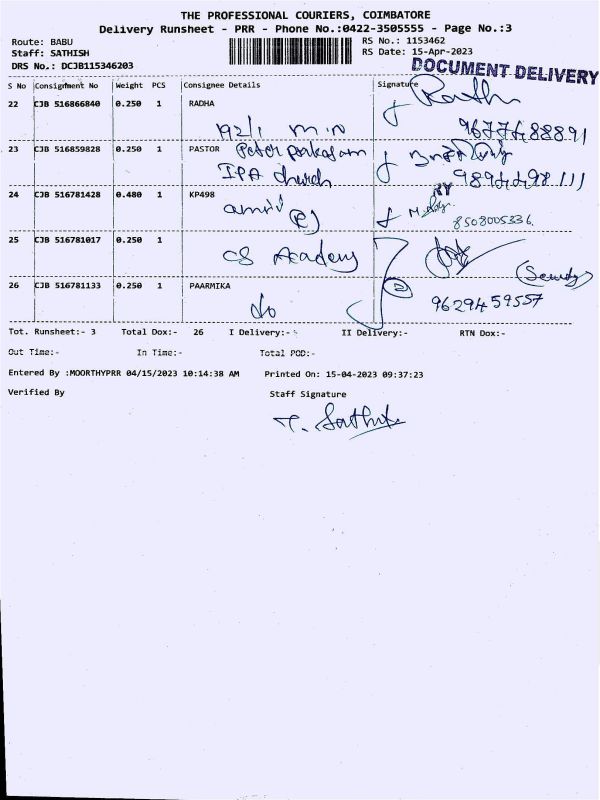 THE PROFESSIONAL COURIERS, COIMBATORE
Delivery Runsheet - PRR - Phone No.:0422-3505555 - Page No.:3
Route: BABU RS No.: 1153462
Staff: SATHISH RS Date: 15-Apr-2023
DRS No.: DCJB115346203 DOCUMENT DELIVERY
S No Consignment No Weight PCS Consignee Details Signature
22 CJB 516866840 0.250 1 RADHA
192/1 M N 9677488891
23 CJB 516859828 0.250 1 PASTOR Peter
IPA church 9894498111
24 CJB 516781428 0.480 1 KP498
8508005336
25 CJB 516781017 0.250 1
CS Academy
26 CJB 516781133 0.250 1 PAARMIKA
do 9629459557
Tot. Runsheet:- 3 Total Dox:- 26 I Delivery:- II Delivery:- RTN Dox:-
Out Time:- In Time:- Total POD:-
Entered By :MOORTHYPRR 04/15/2023 10:14:38 AM Printed On: 15-04-2023 09:37:23
Verified By Staff Signature
T. Sathish